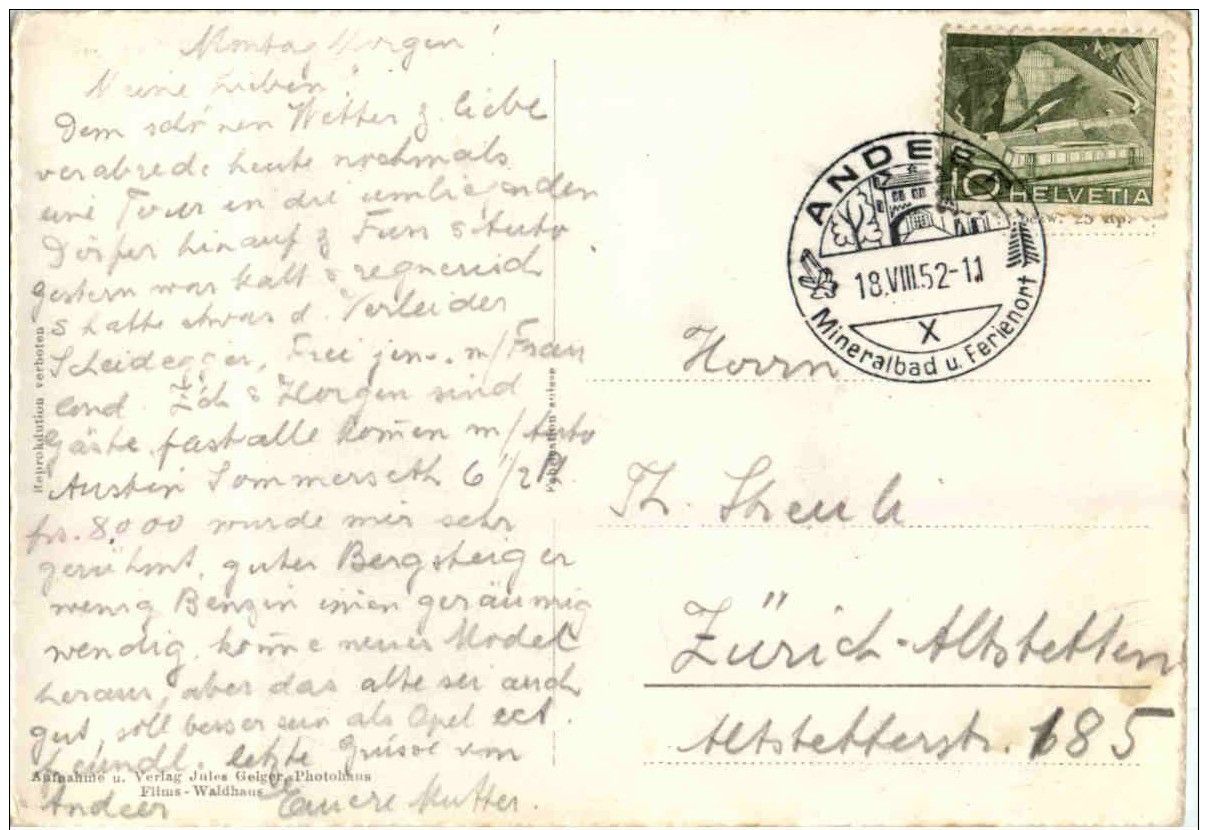 Montag Morgen!
Meine Lieben
Dem schönen Wetter z. liebe
verabred. heute nochmals
eine Tour in die umliegenden
Dörfer hinauf z Fuss & Auto
gestern war kalt & regnereich
& hatte etwas d. Verleider
Scheidegger, Frei jen. m/ Frau
Ich & Horgen sind
Gäste, fast alle kom̄en m/ Auto
Austin Sommerseth 6 1/2
frs. 8.000 wurde mir sehr
gerühmt, guter Bergsteiger
wenig Benzin innen geräumig
wendig, kom̄e neues Model
heraus, aber das alte sei auch
gut, soll besser sein als Opel ect.
Freundl. letzte Grüsse von
Andeer Euere Mutter.
Reproduktion verboten
Aufnahme u. Verlag Jules Geiger, Photohaus
Flims - Waldhaus
10 HELVETIA
ANDEER
18.VIII.52-11
X
Mineralbad u. Ferienort
Herrn
Th. Streuli
Zürich-Altstetten
Altstetterstr. 185